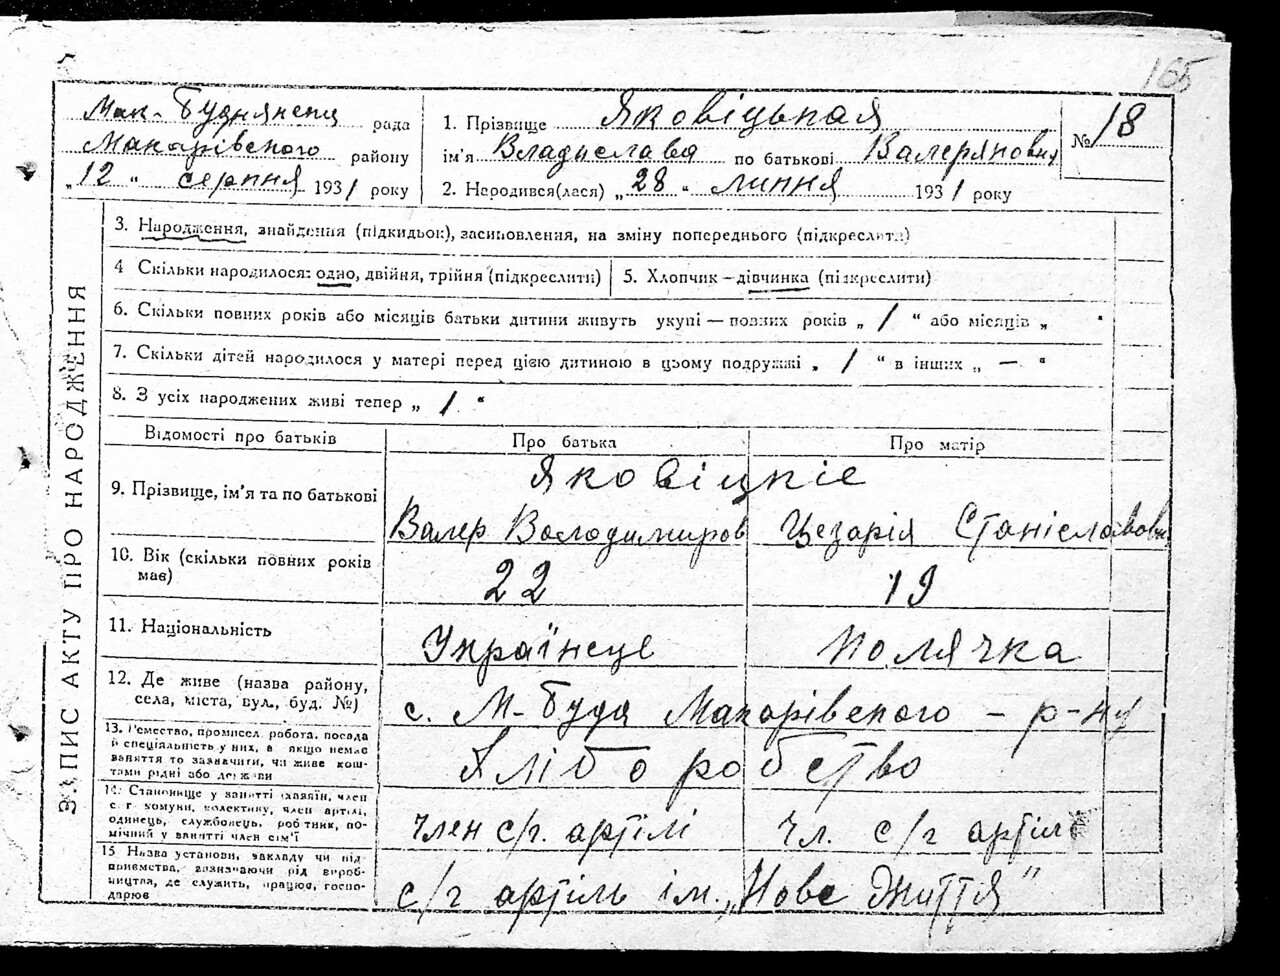 165
Мак-Буднянська рада
Макарівского району
„12“ серпня 1931 року
1. Прізвище Яковіцькая
ім'я Владислава по батькові Валеряновна
2. Народився(лася) „28“ липня 1931 року
№ 18
ЗАПИС АКТУ ПРО НАРОДЖЕННЯ
3. Народження, знайдення (підкидьок), засиновлення, на зміну попереднього (підкреслити)
4 Скільки народилося: одно, двійня, трійня (підкреслити)
5. Хлопчик – дівчинка (підкреслити)
6. Скільки повних років або місяців батьки дитини живуть укупі — повних років „ 1 “ або місяців „ “
7. Скільки дітей народилося у матері перед цією дитиною в цьому подружжі „ 1 “ в інших „ — “
8. З усіх народжених живі тепер „ 1 “
Відомості про батьків
Про батька
Про матір
9. Прізвище, ім'я та по батькові
Яковіцкіе
Валер Володимиров
Цезарія Станіславовн
10. Вік (скільки повних років
має)
22
19
11. Національність
Українець
Полячка
12. Де живе (назва району,
села, міста, вул., буд. №)
с. М-Буда Макарівского - р-ну
13. Ремество, промисел, робота, посада
й спеціяльність у них, а якщо немає
заняття то зазначити, чи живе кош-
тами рідні або держави
Хліборобство
14. Становище у занятті (хазяїн, член
с.-г. комуни, колективу, член артілі,
одинець, службовець, робітник, по-
мічний у занятті член сім'ї
член с/г. артілі
чл. с/г артіл
15 Назва установи, закладу чи під-
приємства, зазначаючи рід вироб-
ництва, де служить, працює, госпо-
дарює
с/г артіль ім. „Нове Життя"